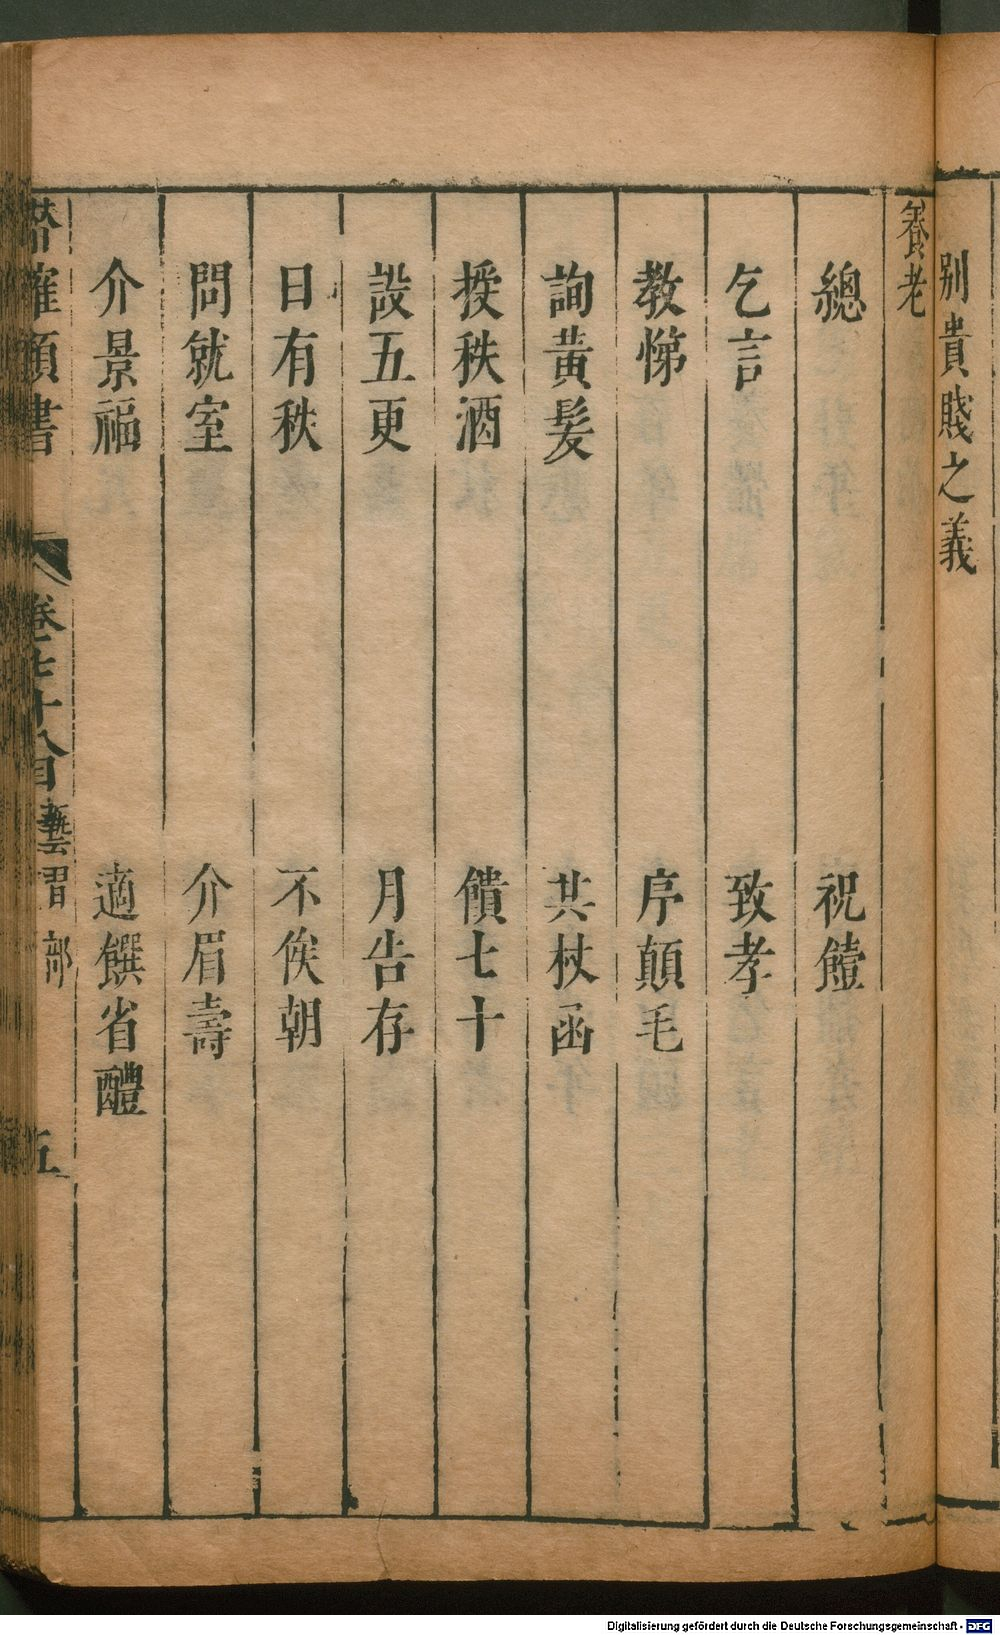 别貴賤之義
養老
總 祝饐
乞言 致孝
教悌 序顛毛
詢黃髪 共杖函
授秩酒 饋七十
設五更 月告存
日有秩 不俟朝
問就室 介眉壽
介景福 適饌省醴
潛確類書 卷七十八目 藝習部 五
Digitalisierung gefördert durch die Deutsche Forschungsgemeinschaft - DFG